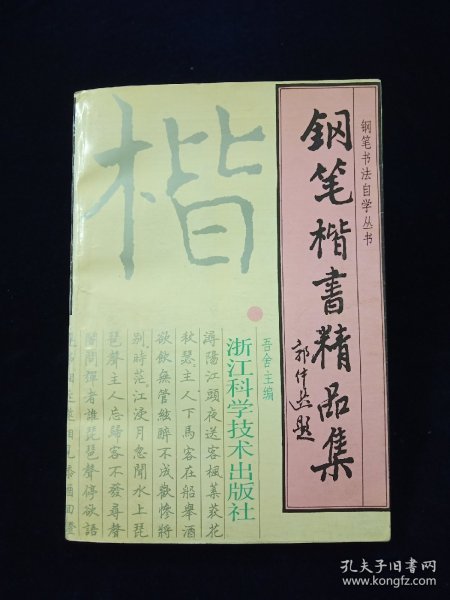 钢笔书法自学丛书
钢笔楷書精品集
郭仲选题
楷
吾舍主编
浙江科学技术出版社
潯陽江頭夜送客楓葉荻花
秋瑟主人下馬客在船舉酒
欲飲無管絃醉不成歡慘將
别時茫江浸月忽聞水上琵
琶聲主人忘歸客不發尋聲
闇問彈者誰琵琶聲停欲語
孔夫子旧书网
www.kongfz.com